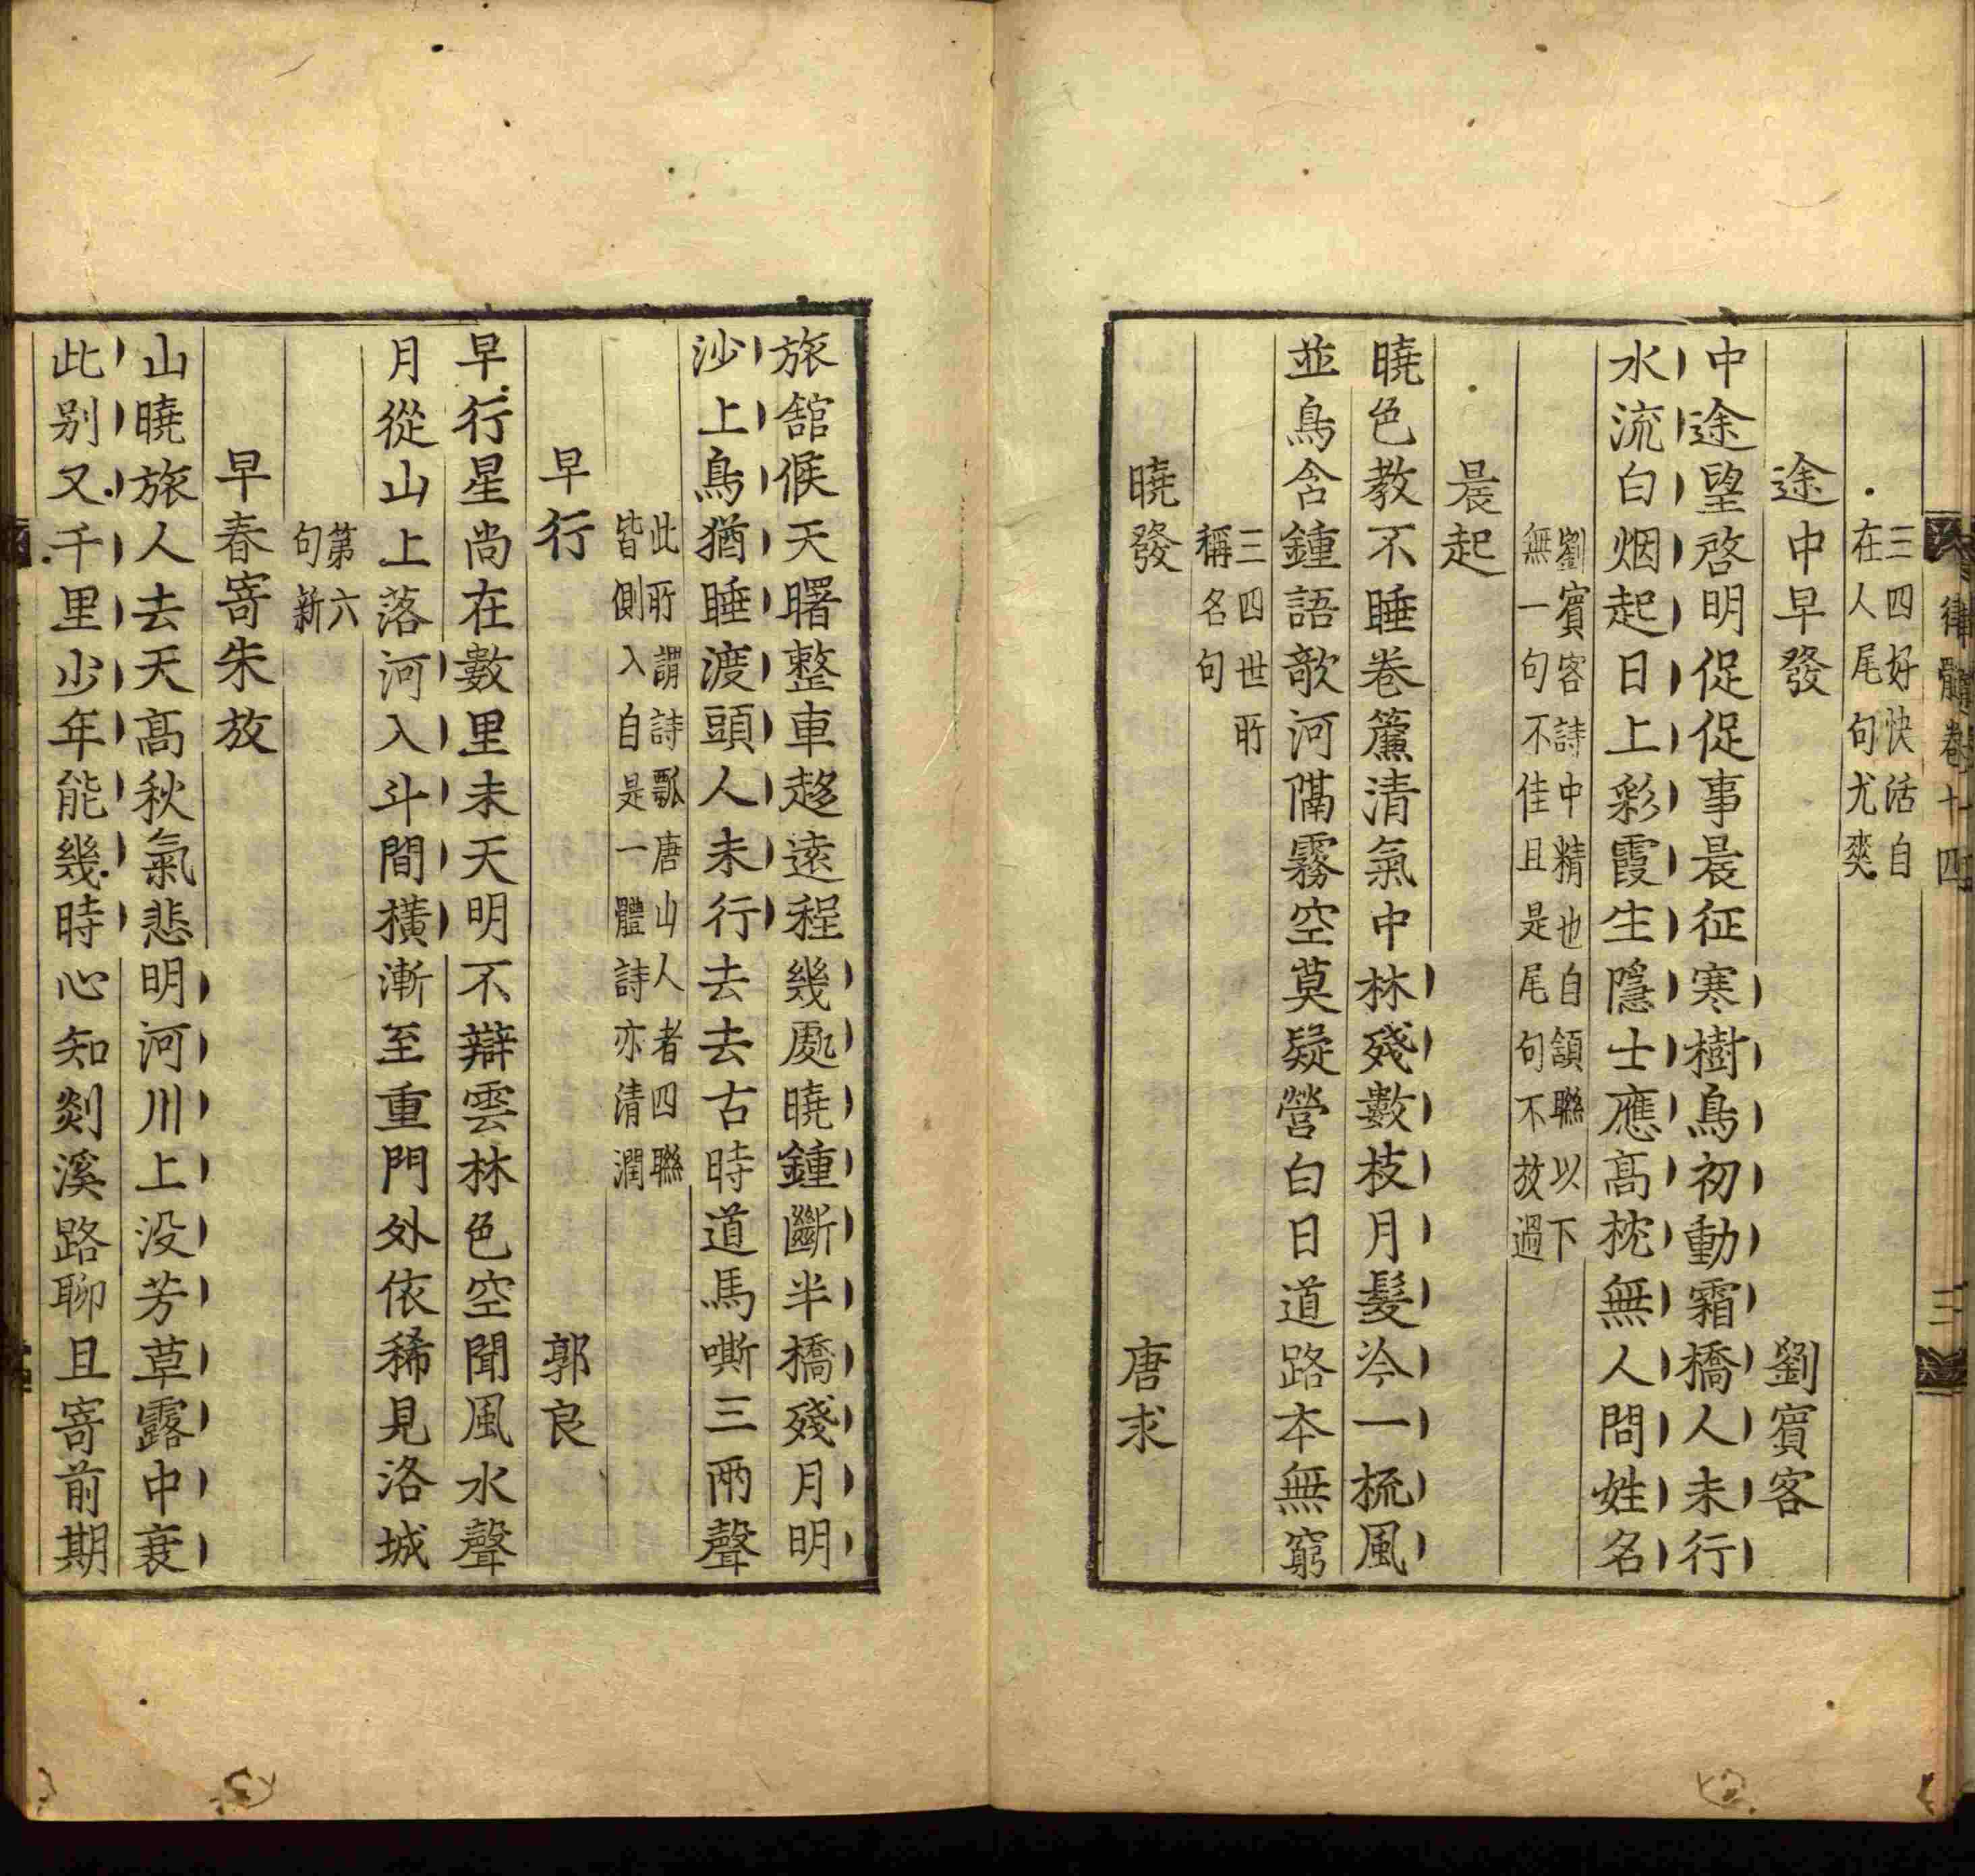 律髓卷十四
三
三四好快活自
在人尾句尤爽
途中早發　劉賓客
中途望啓明促促事晨征寒樹鳥初動霜橋人未行
水流白烟起日上彩霞生隱士應高枕無人問姓名
劉賓客詩中精也自頷聯以下
無一句不佳且是尾句不放過
晨起
曉色教不睡卷簾清氣中林殘數枝月髮冷一梳風
並鳥含鍾語欹河隔霧空莫疑營白日道路本無窮
三四世所
稱名句
曉發　唐求
旅舘候天曙整車趍遠程幾處曉鍾斷半橋殘月明
沙上鳥猶睡渡頭人未行去去古時道馬嘶三兩聲
此所謂詩瓢唐山人者四聯
皆側入自是一體詩亦清潤
早行　郭良
早行星尚在數里未天明不辯雲林色空聞風水聲
月從山上落河入斗間橫漸至重門外依稀見洛城
第六
句新
早春寄朱放
山曉旅人去天高秋氣悲明河川上没芳草露中衰
此别又千里少年能幾時心知剡溪路聊且寄前期